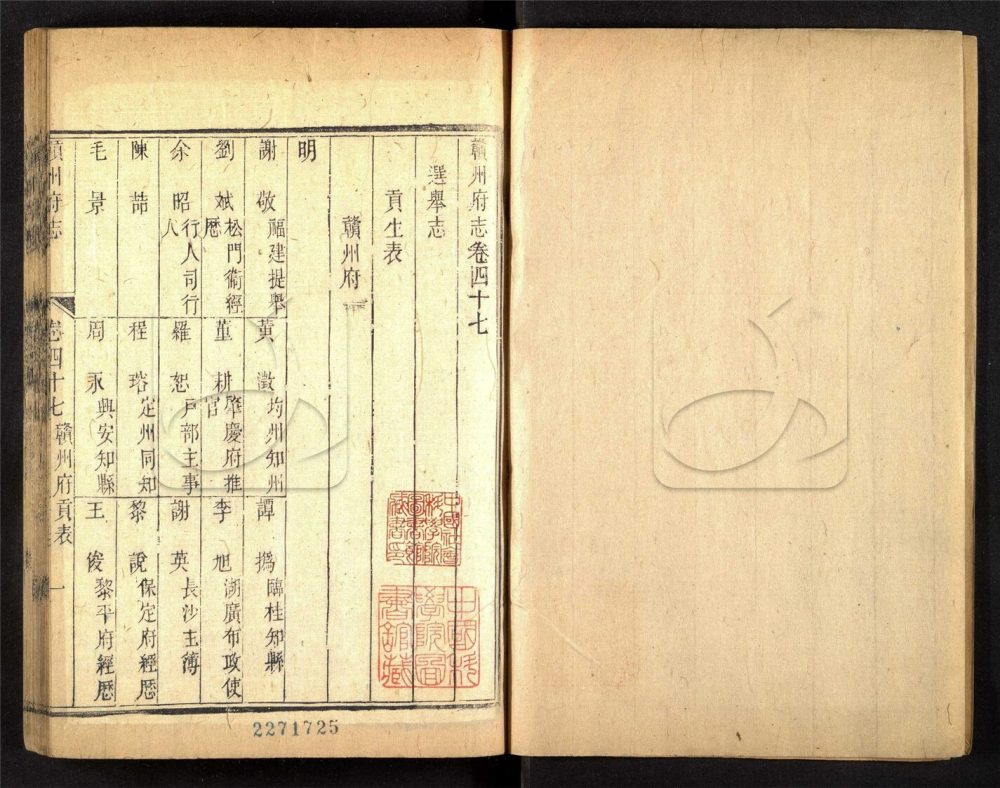 贛州府志卷四十七
選舉志
貢生表
贛州府
明
謝敬 福建提舉 黃澂 均州知州 譚撝 臨桂知縣
劉斌 松門衞經歷 董耕 肇慶府推官 李旭 湖廣布政使
余昭 行人司行人 羅恕 戶部主事 謝英 長沙主簿
陳喆 程瑢 定州同知 黎說 保定府經歷
毛景 周永 興安知縣 王俊 黎平府經歷
贛州府志 卷四十七 贛州府貢表 一
中國社會科學院圖書館藏書印
中國科學院圖書館藏
2271725